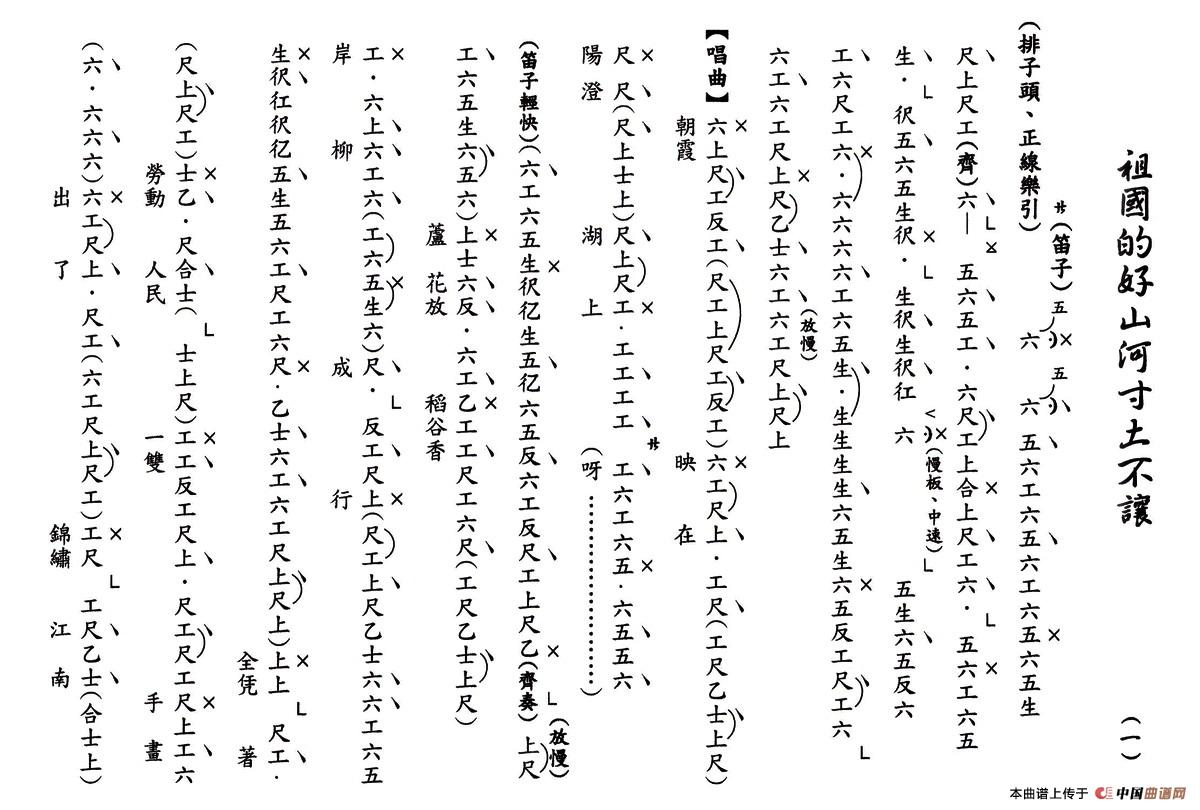 祖國的好山河寸土不讓 (一)
(排子頭、正線樂引) サ(笛子) 五六 五六 五六工六五六工六五六五生
尺上尺工(齊)六— 五六五工·六尺工上合上尺工六· 五六工六五
生·伬五六五生伬·生伬生伬仜 六(慢板、中速) 五生六五反六
工六尺工六·六六六工六五生·生生生生六五生六五反工尺工六
六工六工尺上尺乙士六工六工尺上尺上
(放慢)
【唱曲】六上尺工反工(尺工上尺工反工)六工尺上·工尺(工尺乙士上尺)
朝霞 映 在
尺尺(尺上士上)尺上尺工·工工工 サ 工六工六五·六五五六
陽澄 湖 上 (呀……………………)
(笛子輕快)(六工六五生伬亿生五亿六五反六工反尺工上尺乙(齊奏)上尺
(放慢)
工六五生六五六)上士六反·六工乙工工尺工六尺(工尺乙士上尺)
蘆 花放 稻谷香
工·六上六工六(工六五生六)尺·反工尺上(尺工上尺乙士六六工六五
岸 柳 成 行
生伬仜伬亿五生五六工尺工六尺·乙士六工六工尺上尺上)上上 尺工·
全凭 著
(尺上尺工)士乙·尺合士(士上尺)工工反工尺上·尺工尺工尺上工六
勞動 人民 一雙 手 畫
(六·六六六)六工尺上·尺工(六工尺上尺工)工尺 工尺乙士(合士上)
出 了 錦繡 江 南
本曲譜上传于 中国曲谱网